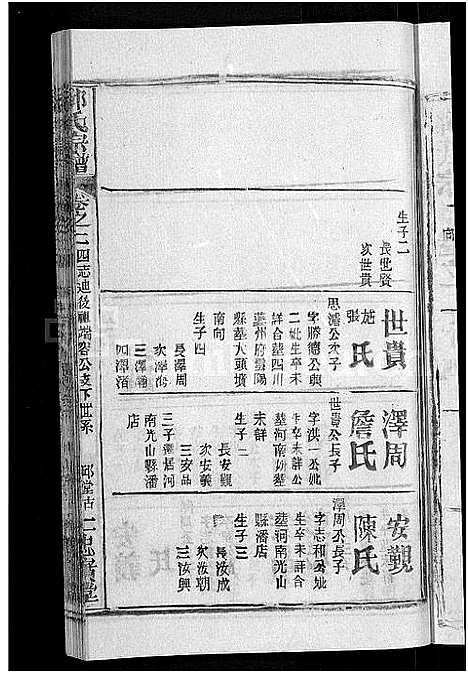 生子二
長世賢
次世貴
世貴
尨氏
張
思濬公次子
字勝德公與
二妣生卒未
詳合墓四川
夔州府雲陽
縣墓大頭墳
南向
生子四
長澤周
次澤海
三澤瀧
四澤滔
澤周
詹氏
世貴公長子
字洪一公妣
生卒未詳公
墓河南妣墓
未詳
生子三
長安觀
次安義
三安品
三子遷居河
南光山縣潘
店
安觀
陳氏
澤周公長子
字志和公妣
生卒未詳合
墓河南光山
縣潘店
生子三
長汝成
次汝朝
三汝興
氏宗譜
卷之二
四志迪後祖端容公支下世系